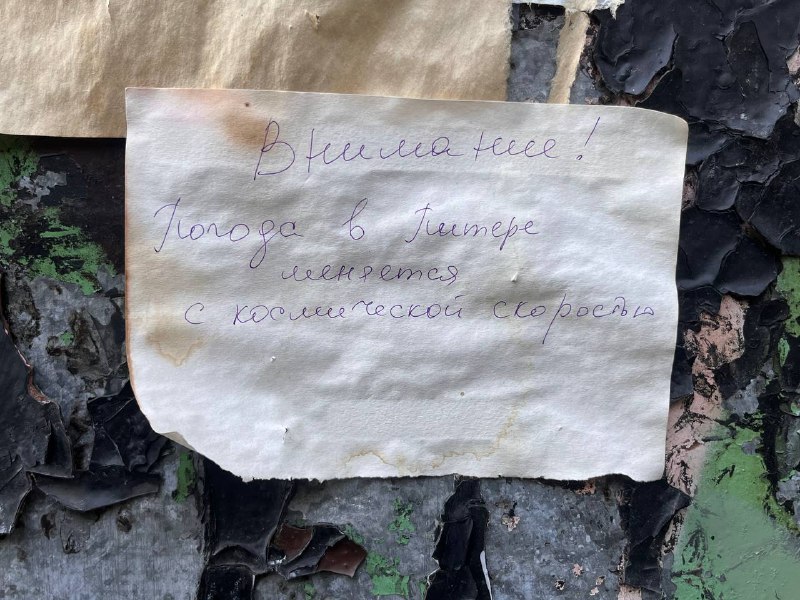 Внимание!
Погода в Питере
меняется
с космической скоростью